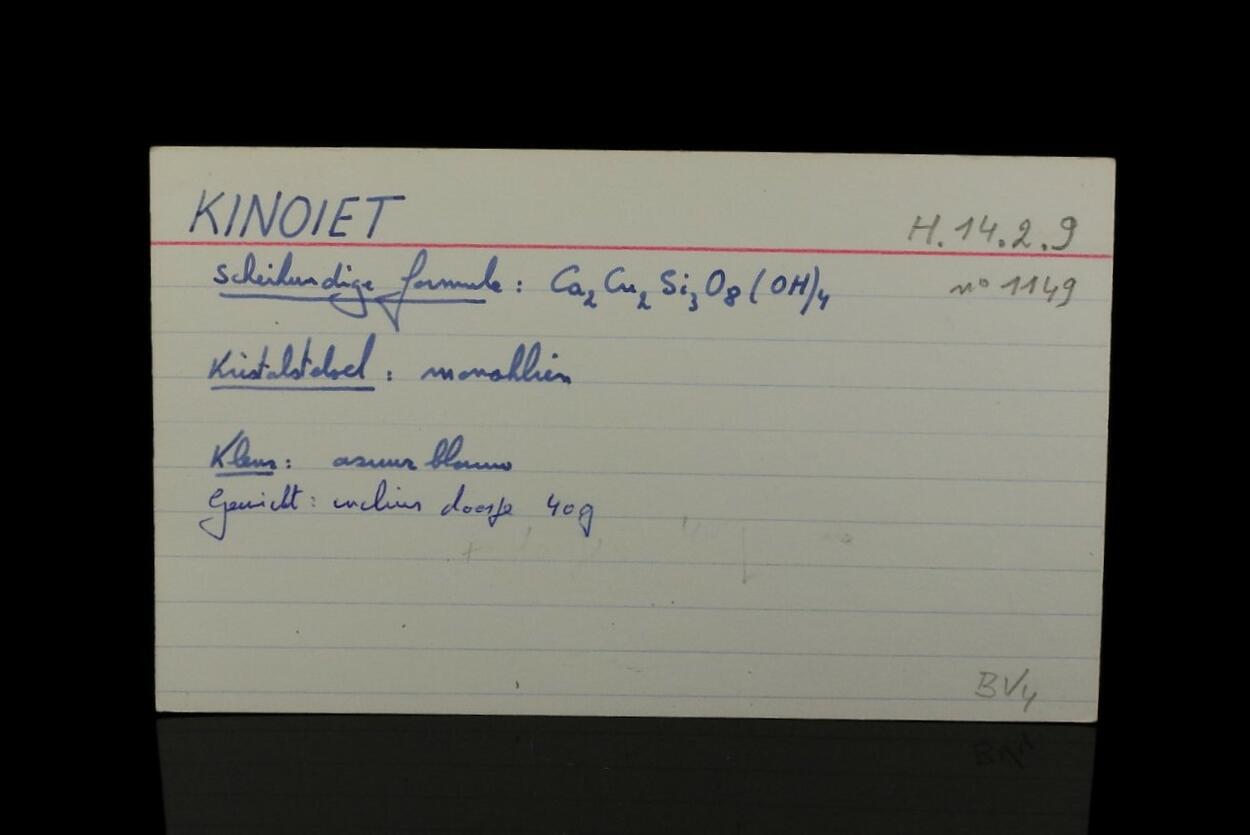 KINOIET
H. 14.2.9
Scheikundige formule : Ca2 Cu2 Si3 O8 (OH)4
n° 1149
Kristalstelsel : monoklien
Kleur : azuur blauw
Gewicht : inclius doosje 40g
BV4